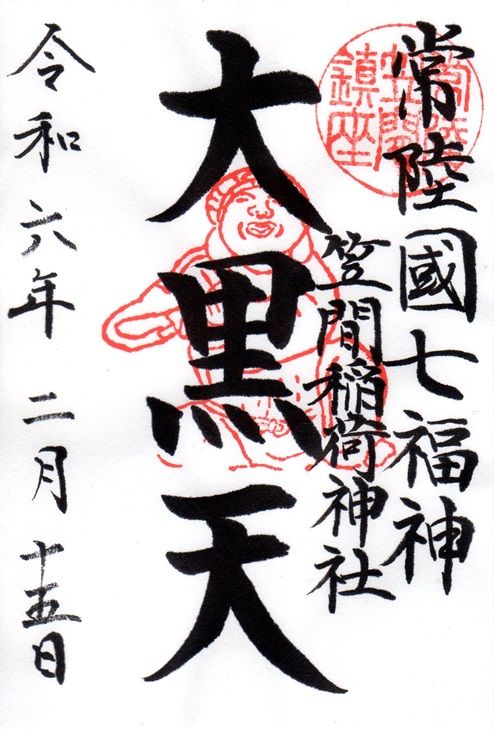 常陸國七福神
笠間稲荷神社
大黒天
令和六年 二月 十五日
常陸
笠間
鎮座